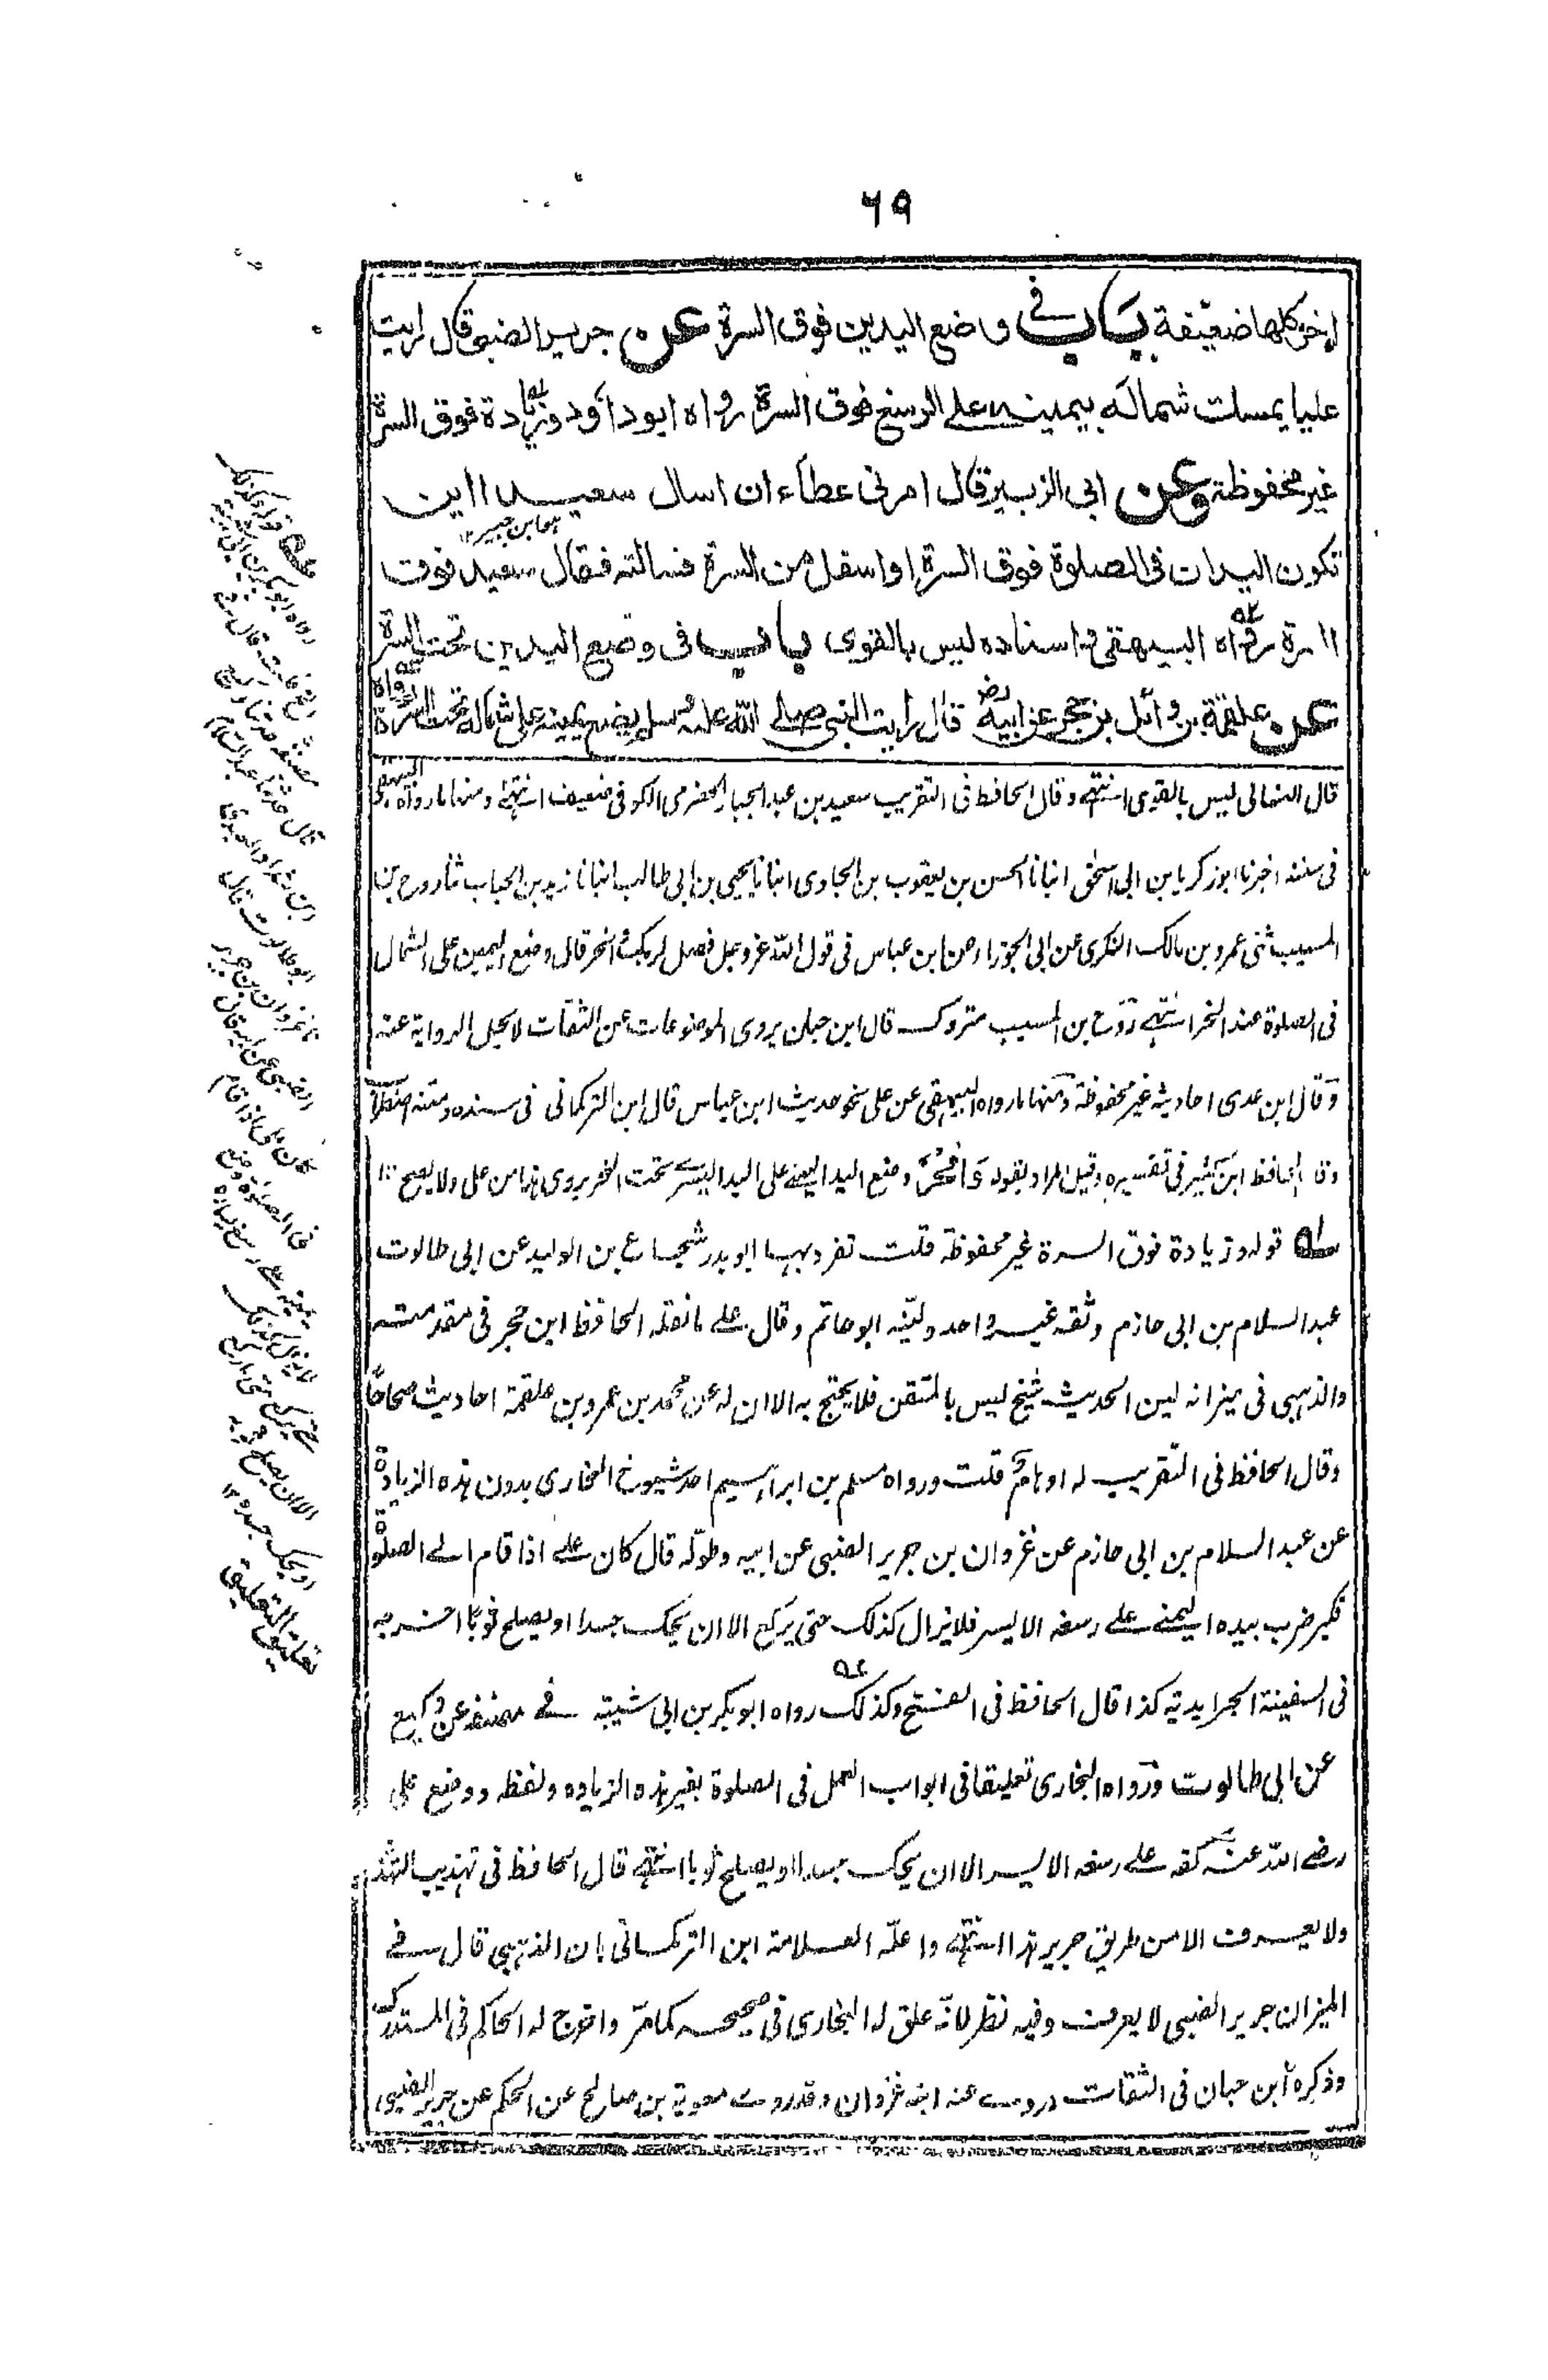 ٦٩
اخر كلها ضعيفة باب في وضع اليدين فوق السرة عن جرير الضبي قال رايت
عليا يمسك شماله بيمينه على الرسغ فوق السرة رواه ابو داؤد وزيادة فوق السرة
غير محفوظة وعن ابى الزبير قال امرنى عطاء ان اسال سعيدا اين
هو ابن جبير ١٢
تكون اليدان فى الصلوة فوق السرة او اسفل من السرة فسالته فقال سعيد فوق
السرة رواه البيهقى واسناده ليس بالقوى باب فى وضع اليدين تحت السرة
عن علقمة بن وائل بن حجر عن ابيه رض قال رايت النبى صلى الله عليه وسلم يضع يمينه على شماله تحت السرة رواه
قال النسائى ليس بالقوى انتهى وقال الحافظ فى التقريب سعيد بن عبد الجبار الحضرمى الكوفى ضعيف انتهى ومنها ما رواه البيهقى
فى سننه اخبرنا ابو زكريا بن ابى اسحق انبانا الحسن بن يعقوب بن البخارى انبانا يحيى بن ابى طالب انبانا زيد بن الحباب ثنا روح بن
المسيب ثنى عمرو بن مالك النكرى عن ابى الجوزاء عن ابن عباس فى قول الله عزوجل فصل لربك وانحر قال وضع اليمين على الشمال
فى الصلوة عند النحر انتهى روح بن المسيب متروك قال ابن حبان يروى الموضوعات عن الثقات لا يحل الرواية عنه
وقال ابن عدى احاديثه غير محفوظة ومنها ما رواه البيهقى عن على نحو حديث ابن عباس قال ابن التركمانى فى سنده ومتنه اضطرابا
وقال الحافظ ابن كثير فى تفسيره وقيل المراد بقوله وَانْحَرْ وضع اليد اليمنى على اليد اليسرى تحت النحر يروى هذا من على ولا يصح ١٢
له قوله وزيادة فوق السرة غير محفوظة قلت تفرد بها ابو بدر شجاع بن الوليد عن ابى طالوت
عبد السلام بن ابى حازم وثقه غير واحد وليّنه ابو حاتم وقال على ما نقله الحافظ ابن حجر فى مقدمته
والذهبى فى ميزانه لين الحديث شيخ ليس بالمتقن فلا يحتج به الا ان له عن محمد بن عمرو بن علقمة احاديث صحاحًا
وقال الحافظ فى التقريب له اوهام قلت ورواه مسلم بن ابراهيم احد شيوخ البخارى بدون هذه الزيادة
عن عبد السلام بن ابى حازم عن غزوان بن جرير الضبى عن ابيه وطوّله قال كان على اذا قام الى الصلوة
فكبر ضرب بيده اليمنى على رسغه الايسر فلا يزال كذلك حتى يركع الا ان يحك جسدا او يصلح ثوبًا اخرجه
فى السفينة الجرايدية كذا قال الحافظ فى الفتح وكذلك رواه ابو بكر بن ابى شيبة فى مصنفه عن وكيع
عن ابى طالوت ورواه البخارى تعليقا فى ابواب العمل فى الصلوة بغير هذه الزيادة ولفظه ووضع على
رضى الله عنه كفه على رسغه الايسر الا ان يحك جسدا او يصلح ثوبا انتهى قال الحافظ فى تهذيب التهذ
ولا يعرف الا من طريق جرير هذا انتهى واعلّه العلامة ابن التركمانى بان الذهبى قال فى
الميزان جرير الضبى لا يعرف وفيه نظر لانّه علق له البخارى فى صحيحه كما مرّ واخرج له الحاكم فى المستدرك
وذكره ابن حبان فى الثقات وروى عنه ابنه غزوان وقد روى معوية بن صالح عن الحكم عن جرير الضبى
قوله وكذلك
رواه ابو بكر بن ابى شيبة
مصنفه حدثنا وكيع
قال حدثنا عبد السلام
ابو طالوت قال
نا غزوان بن جرير
الضبى عن ابيه قال
كان على اذا قام
فى الصلوة وضع
يمينه على رسغ يساره
فلا يزال كذلك
حتى يركع متى ما ركع
الا ان يصلح ثوبه
او يحك جسده ١٢
تعليق التعليق